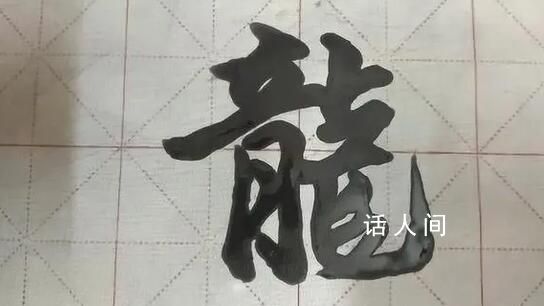 龍
话人间